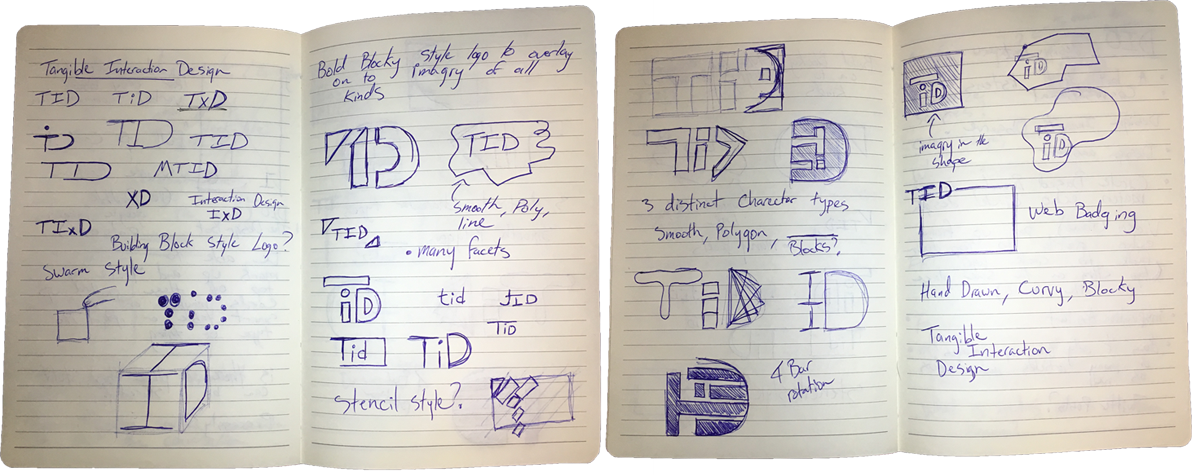 Tangible Interaction Design
TID TiD TxD
iD TID TID
TID MTID
XD Interaction Design
IxD
TIxD Building Block Style Logo?
Swarm Style
TID
TID
Bold Blocky Style logo to overlay
on to imagry of all
kinds
TID TID
Smooth, Poly,
line
TID
• many facets
TiD tid tID
TiD
Tid TiD
Stencil Style?
TiD
TiD
3 distinct Charector types
Smooth, Polygon, Blocks?
TiD ID
TiD
4 Bar
rotation
TiD iD
imagry in the
shape
TiD
TID
Web Badging
Hand Drawn, Curvy, Blocky
Tangible
Interaction
Design